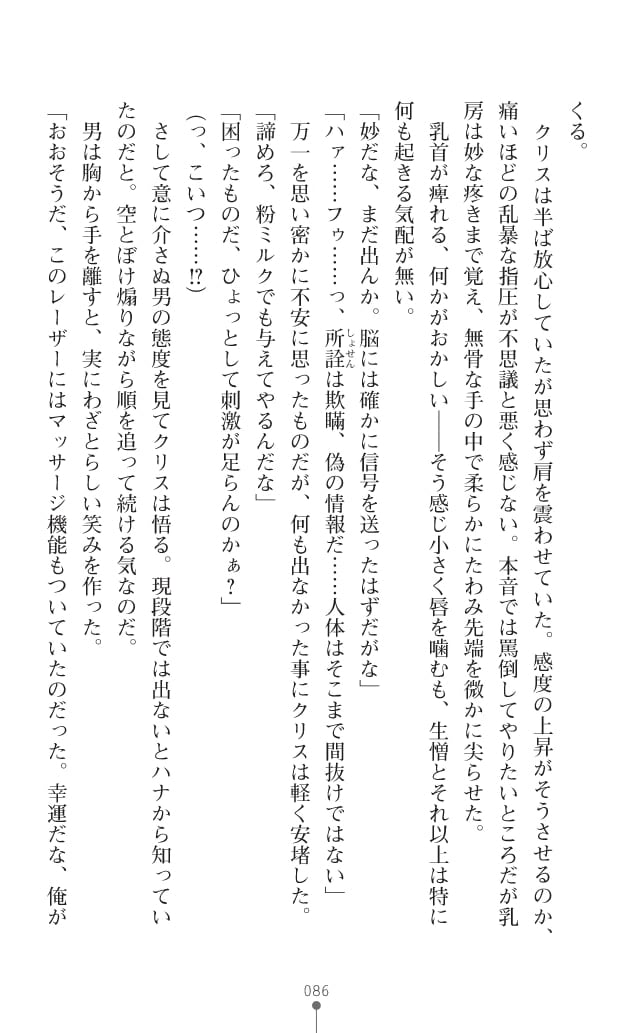 くる。
　クリスは半ば放心していたが思わず肩を震わせていた。感度の上昇がそうさせるのか、
痛いほどの乱暴な指圧が不思議と悪く感じない。本音では罵倒してやりたいところだが乳
房は妙な疼きまで覚え、無骨な手の中で柔らかにたわみ先端を微かに尖らせた。
　乳首が痺れる、何かがおかしい――そう感じ小さく唇を噛むも、生憎とそれ以上は特に
何も起きる気配が無い。
「妙だな、まだ出んか。脳には確かに信号を送ったはずだがな」
「ハァ……フゥ……っ、所詮は欺瞞、偽の情報だ……人体はそこまで間抜けではない」
しょせん
　万一を思い密かに不安に思ったものだが、何も出なかった事にクリスは軽く安堵した。
「諦めろ、粉ミルクでも与えてやるんだな」
「困ったものだ、ひょっとして刺激が足らんのかぁ？」
（っ、こいつ……!?）
　さして意に介さぬ男の態度を見てクリスは悟る。現段階では出ないとハナから知ってい
たのだと。空とぼけ煽りながら順を追って続ける気なのだ。
　男は胸から手を離すと、実にわざとらしい笑みを作った。
「おおそうだ、このレーザーにはマッサージ機能もついていたのだった。幸運だな、俺が
086